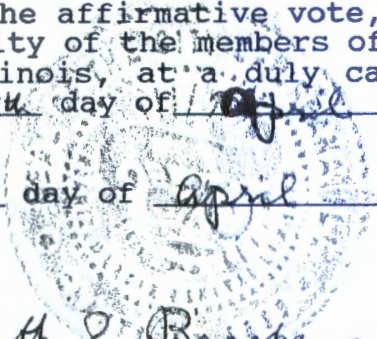 he affirmative vote,
ity of the members of
inois, at a duly ca
day of April
day of April